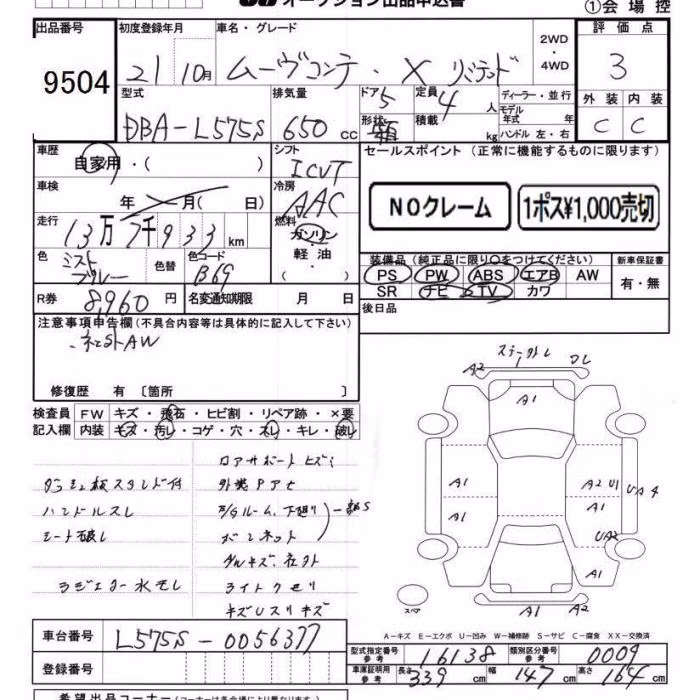 オークション出品申込書 ①会場控
出品番号 初度登録年月 車名・グレード 2WD・4WD 評価点
9504 21 10月 ムーヴコンテ・X リミテッド 3
型式 排気量 ドア 5 定員 4人 ディーラー・並行 外装 内装
DBA-L575S 650cc 形状 箱 積載 kg モデル年式 年式 ハンドル 左・右 C C
車歴 自家用・( ) シフト ICVT セールスポイント (正常に機能するものに限ります)
車検 年 月( 日) 冷房 AAC NOクレーム 1ポス¥1,000売切
走行 13万7千933km 燃料 ガソリン・軽油・( )
色 ミストブルー 色替 色コード B69 装備品 (純正品に限り○をつけてください) 新車保証書
PS PW ABS エアB AW 有・無
SR ナビ TV カワ
R券 8,960円 名変通知期限 月 日 後日品
注意事項申告欄(不具合内容等は具体的に記入して下さい)
・社外AW
修復歴 有 〔箇所 〕
検査員 FW キズ・飛石・ヒビ割・リペア跡・×要
記入欄 内装 キズ・汚レ・コゲ・穴・スレ・キレ・破レ
ステーカレ ワレ
A2
A1
A1 A2 U1 UA4
A1 A1
UA2
A1
A1 A2
スペア
ロアサポートヒズミ
ダッシュ板スタンド付 外装Pアセ
ハンドルスレ F/Gルーム、下廻リ 錆S
シート破レ ボンネット
ラジエター水モレ ライトクモリ
キズUスリキズ
A-キズ E-エクボ U-凹み W-補修跡 S-サビ C-腐食 XX-交換済
車台番号 L575S-0056377
型式指定番号 参考 16138 類別区分番号 参考 0009
登録番号 車庫証明用 参考 長さ 339cm 幅 147cm 高さ 164cm
希望出品コーナー (コーナーは各会場により異なります)